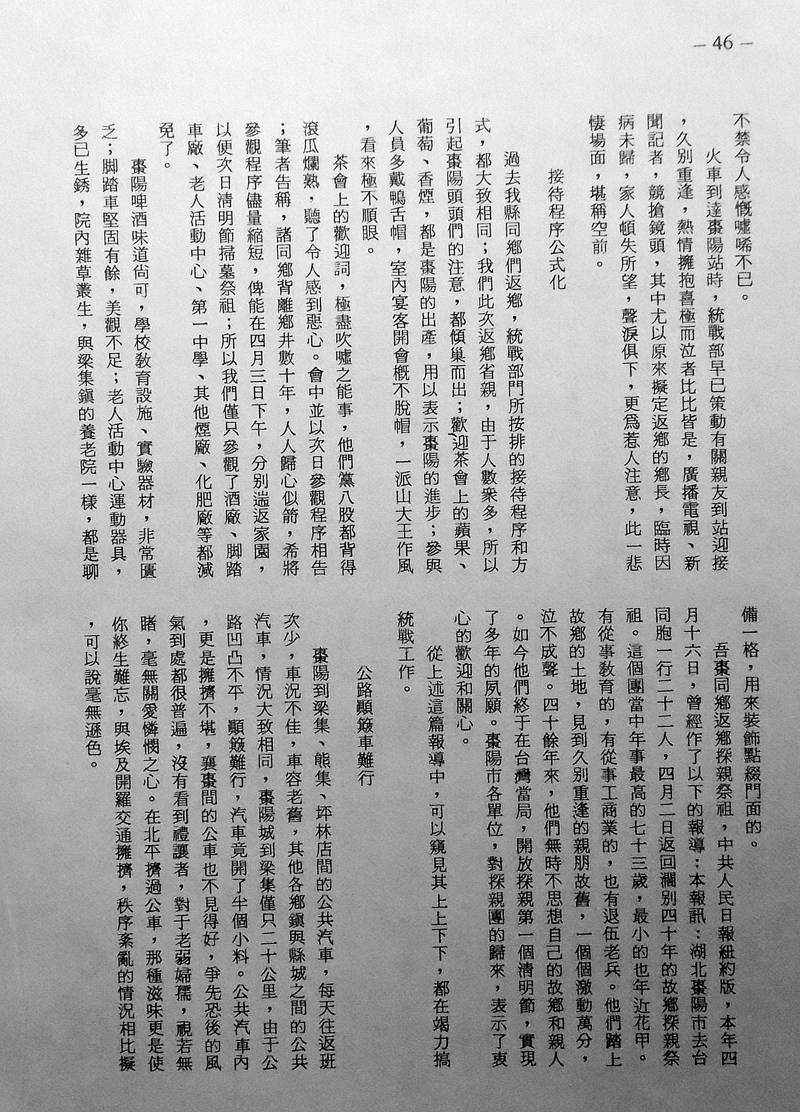 — 46 —
不禁令人感慨噓唏不已。
火車到達棗陽站時，統戰部早已策動有關親友到站迎接
，久別重逢，熱情擁抱喜極而泣者比比皆是，廣播電視、新
聞記者，競搶鏡頭，其中尤以原來擬定返鄉的鄉長，臨時因
病未歸，家人頓失所望，聲淚俱下，更爲惹人注意，此一悲
悽場面，堪稱空前。
接待程序公式化
過去我縣同鄉們返鄉，統戰部門所按排的接待程序和方
式，都大致相同；我們此次返鄉省親，由于人數衆多，所以
引起棗陽頭頭們的注意，都傾巢而出；歡迎茶會上的蘋果、
葡萄、香煙，都是棗陽的出產，用以表示棗陽的進步；參與
人員多戴鴨舌帽，室內宴客開會概不脫帽，一派山大王作風
，看來極不順眼。
茶會上的歡迎詞，極盡吹噓之能事，他們黨八股都背得
滾瓜爛熟，聽了令人感到惡心。會中並以次日參觀程序相告
；筆者告稱，諸同鄉背離鄉井數十年，人人歸心似箭，希將
參觀程序儘量縮短，俾能在四月三日下午，分別遄返家園，
以便次日清明節掃墓祭祖；所以我們僅只參觀了酒廠、脚踏
車廠、老人活動中心、第一中學、其他煙廠、化肥廠等都減
免了。
棗陽啤酒味道尚可，學校教育設施、實驗器材，非常匱
乏；脚踏車堅固有餘，美觀不足；老人活動中心運動器具，
多已生銹，院內雜草叢生，與梁集鎮的養老院一樣，都是聊
備一格，用來裝飾點綴門面的。
吾棗同鄉返鄉探親祭祖，中共人民日報紐約版，本年四
月十六日，曾經作了以下的報導：本報訊：湖北棗陽市去台
同胞一行二十二人，四月二日返回濶別四十年的故鄉探親祭
祖。這個團當中年事最高的七十三歲，最小的也年近花甲。
有從事教育的，有從事工商業的，也有退伍老兵。他們踏上
故鄉的土地，見到久別重逢的親朋故舊，一個個激動萬分，
泣不成聲。四十餘年來，他們無時不思想自己的故鄉和親人
。如今他們終于在台灣當局，開放探親第一個清明節，實現
了多年的夙願。棗陽市各單位，對探親團的歸來，表示了衷
心的歡迎和關心。
從上述這篇報導中，可以窺見其上上下下，都在竭力搞
統戰工作。
公路顚簸車難行
棗陽到梁集、熊集、坪林店間的公共汽車，每天往返班
次少，車況不佳，車容老舊，其他各鄉鎮與縣城之間的公共
汽車，情況大致相同，棗陽城到梁集僅只二十公里，由于公
路凹凸不平，顚簸難行，汽車竟開了半個小料。公共汽車內
，更是擁擠不堪，襄棗間的公車也不見得好，爭先恐後的風
氣到處都很普遍，沒有看到禮讓者，對于老弱婦孺，視若無
睹，毫無關愛憐憫之心。在北平擠過公車，那種滋味更是使
你終生難忘，與埃及開羅交通擁擠，秩序紊亂的情況相比擬
，可以說毫無遜色。